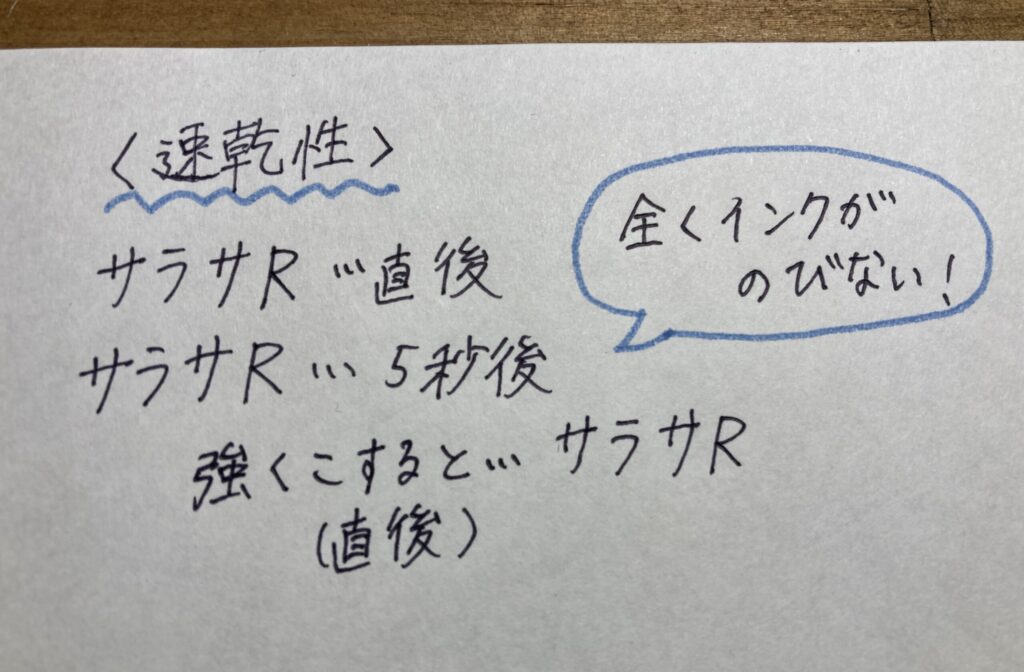 〈速乾性〉
サラサR…直後
全くインクが
のびない!
サラサR…5秒後
強くこすると…サラサR
(直後)